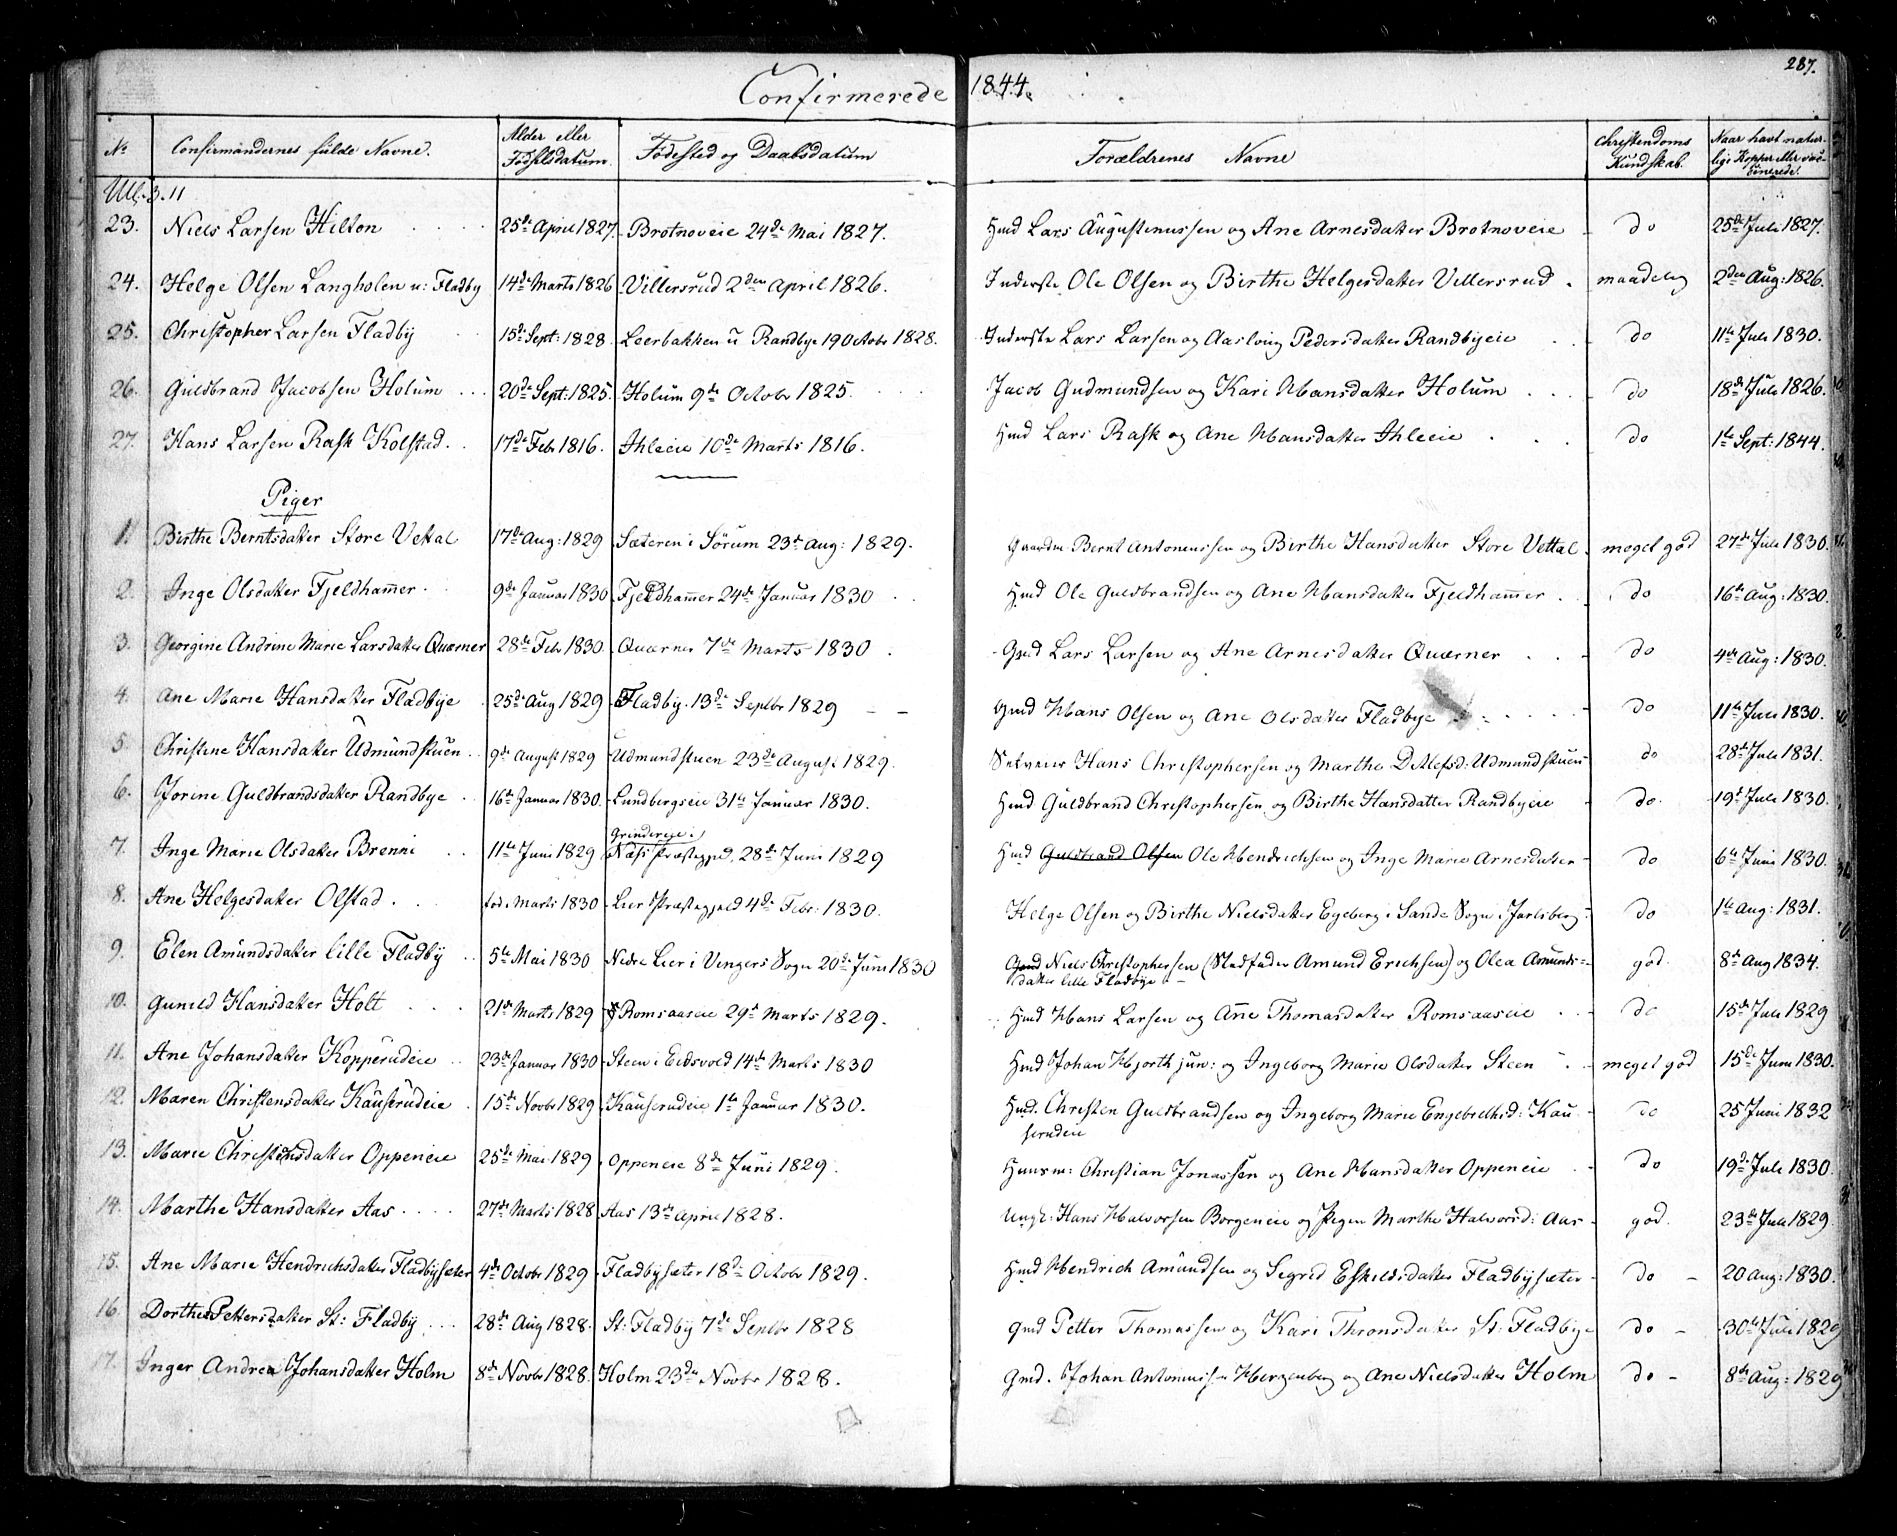 Confirmerede 1844.
287.
No Confirmandernes fülde Navne. Alder eller Födselsdatum. Födested og Daabsdatum Forældrenes Navne Christendoms Kundskab. Naar havt naturlige Kopper eller vaccinerede.
Ull. 3. 11
23. Niels Larsen Hilton 25de April 1827. Brotnoveie 24de Mai 1827. Hmd Lars Augustinussen og Ane Arnesdatter Brotnoveie do 25de Juli 1827.
24. Helge Olsen Langholen u: Fladby 14de Marts 1826 Villersrud 2den April 1826. Inderste Ole Olsen og Birthe Helgesdatter Villersrud maadelig 2den Aug: 1826.
25. Christopher Larsen Fladby 15de Sept: 1828 Leerbakken u Randbye 19 Octobr 1828. Inderste Lars Larsen og Aasloug Pedersdatter Randbyeie do 11te Juli 1830.
26. Guldbrand Jacobsen Holum 20de Sept: 1825. Holum 9de Octobr 1825. Jacob Gudmundsen og Kari Hansdatter Holum do 18de Juli 1826.
27. Hans Larsen Rask Kolstad. 17de Febr 1816. Ihleeie 10de Marts 1816. Hmd Lars Rask og Ane Hansdatter Ihleeie do 1te Sept: 1844.
Piger
1. Birthe Berntsdatter Store Vettal 17de Aug: 1829 Sæteren i Sörum 23de Aug: 1829. Gaardm. Bernt Antonussen og Birthe Hansdatter Store Vettal. meget god 27de Juli 1830.
2. Inge Olsdatter Fjeldhamer 9de Januar 1830 Fjeldhammer 24de Januar 1830 Hmd Ole Guldbrandsen og Ane Hansdatter Fjeldhamer do 16de Aug: 1830.
3. Georgine Andrine Marie Larsdatter Quærner 28de Febr 1830 Quærner 7de Marts 1830 Gmd Lars Larsen og Ane Arnesdatter Quærner do 4de Aug: 1830.
4. Ane Marie Hansdatter Fladbye 25de Aug 1829 Fladby 13de Septbr 1829 Gmd Hans Olsen og Ane Olsdatter Fladbye do 11te Juli 1830.
5. Christine Hansdatter Udmundstuen 9de August 1829 Udmundstuen 23de August 1829. Selveier Hans Christophersen og Marthe Detlefsd: Udmundstuen do 28de Juli 1831.
6. Jorine Guldbrandsdatter Randbye 16de Januar 1830. Lundbergseie 31te Januar 1830. Hmd Guldbrand Christophersen og Birthe Hansdatter Randbyeie do. 19de Juli 1830.
Grindereie i
7. Inge Marie Olsdatter Brenni 11te Juni 1829 Næss Præstegjd. 28de Juni 1829 Hmd Guldbrand Olsen Ole Hendrichsen og Inge Marie Arnesdatter do 6te Juni 1830.
8. Ane Helgesdatter Olstad. föd i Marts 1830 Lier Præstegjeld 4de Febr: 1830. Helge Olsen og Birthe Nielsdatter Egeberg i Sande Sogn i Jarlsberg do 1te Aug: 1831.
9. Elen Amundsdatter lille Fladby 5te Mai 1830 Nedre Lier i Vingers Sogn 20de Juni 1830 Gmd Niels Christophersen (Stedfader Amund Erichsen) og Olea Amunds- god. 8de Aug 1834.
datter lille Fladbye
10. Gunild Hansdatter Holt 21de Marts 1829 Romsaaseie 29de Marts 1829. Hmd Hans Larsen og Ane Thomasdatter Romsaaseie do 15de Juli 1829
11. Ane Johansdatter Kopperudeie 23de Januar 1830 Steen i Eidsvold 14de Marts 1830 Hmd Johan Hjorth jun: og Ingeborg Marie Olsdatter Steen meget god 15de Juni 1830.
12. Maren Christensdatter Kauserudeie 15de Novbr 1829 Kauserudeie 1te Januar 1830. Hmd. Christen Guldbrandsen og Ingeborg Marie Engebrethsd: Kau- do 25 Juni 1832
serudeie
13. Marie Christiansdatter Oppeneie 25de Mai 1829 Oppeneie 8de Juni 1829. Huusm: Christian Jonassen og Ane Hansdatter Oppeneie do 19de Juli 1830.
14. Marthe Hansdatter Aas 27de Marts 1828 Aas 13de April 1828. Ungk: Hans Halvorsen Borgeneie og Pigen Marthe Halvorsd: Aas god. 23de Juli 1829.
15. Ane Marie Hendrichsdatter Fladbysæter 4de Octobr 1829 Fladbysæter 18de Octobr 1829. Hmd Hendrich Amundsen og Segrid Eskildsdatter Fladbysæter do 20 Aug: 1830.
16 Dorthe Pettersdatter St: Fladby 28de Aug 1828. St: Fladby 7de Septbr 1828 Gmd Petter Thomassen og Kari Thronsdatter St: Fladbye do 30te Juli 1829
17. Inger Andrea Johansdatter Holm 8de Novbr 1828. Holm 23de Novbr 1828. Gmd. Johan Antonius Hergenberg og Ane Nielsdatter Holm do 8de Aug: 1829